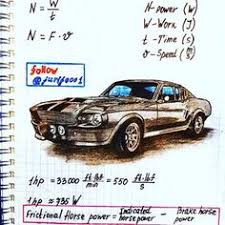 N = W/t
N = F · v
N-Power (W)
W-Work (J)
t-Time (s)
v-Speed
follow
1hp = 33000 ft·lbf/min = 550 ft·lbf/s
1hp ≈ 735 W
Frictional Horse power = Indicated horsepower - Brake horse power